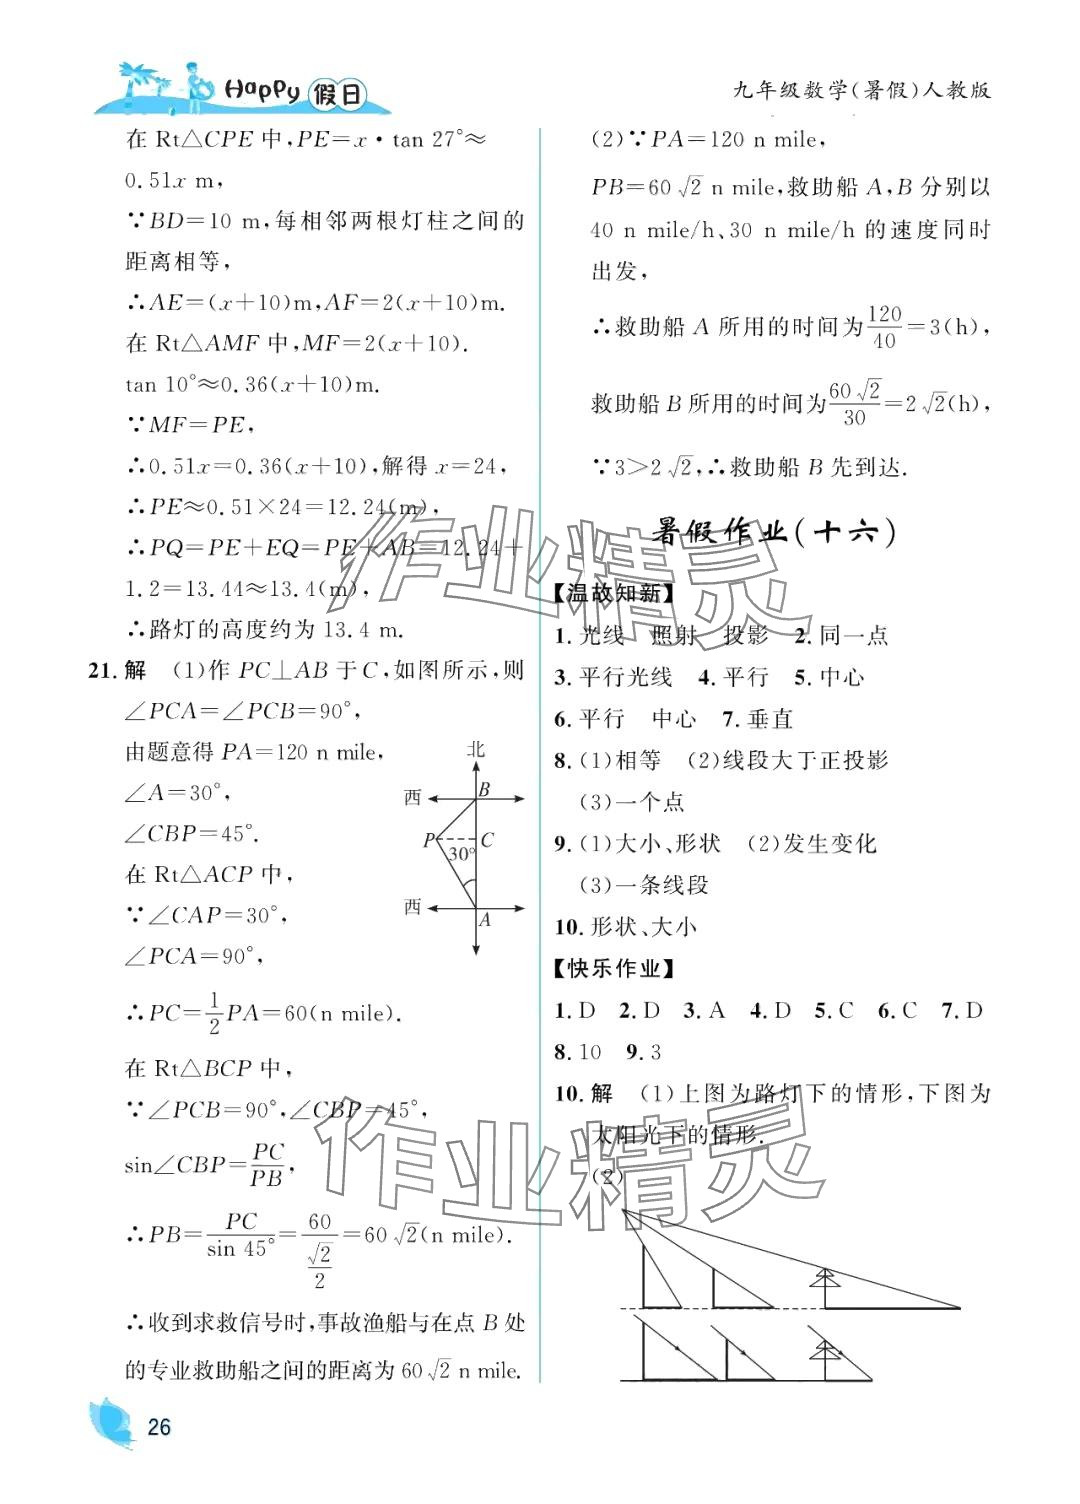 Happy 假日
九年级数学(暑假)人教版
在 Rt△CPE 中,PE=x·tan 27°≈
0.51x m,
∵BD=10 m,每相邻两根灯柱之间的
距离相等,
∴AE=(x+10)m,AF=2(x+10)m.
在 Rt△AMF 中,MF=2(x+10).
tan 10°≈0.36(x+10)m.
∵MF=PE,
∴0.51x=0.36(x+10),解得 x=24,
∴PE≈0.51×24=12.24(m),
∴PQ=PE+EQ=PE+AB=12.24+
1.2=13.44≈13.4(m),
∴路灯的高度约为 13.4 m.
21.解 (1)作 PC⊥AB 于 C,如图所示,则
∠PCA=∠PCB=90°,
由题意得 PA=120 n mile,
∠A=30°,
∠CBP=45°.
在 Rt△ACP 中,
∵∠CAP=30°,
∠PCA=90°,
北
西
B
P
C
30°
西
A
∴PC=1/2PA=60(n mile).
在 Rt△BCP 中,
∵∠PCB=90°,∠CBP=45°,
sin∠CBP=PC/PB,
∴PB=PC/sin 45°=60/(√2/2)=60√2(n mile).
∴收到求救信号时,事故渔船与在点 B 处
的专业救助船之间的距离为 60√2 n mile.
(2)∵PA=120 n mile,
PB=60√2 n mile,救助船 A,B 分别以
40 n mile/h、30 n mile/h 的速度同时
出发,
∴救助船 A 所用的时间为120/40=3(h),
救助船 B 所用的时间为60√2/30=2√2(h),
∵3>2√2,∴救助船 B 先到达.
暑假作业(十六)
【温故知新】
1.光线 照射 投影 2.同一点
3.平行光线 4.平行 5.中心
6.平行 中心 7.垂直
8.(1)相等 (2)线段大于正投影
(3)一个点
9.(1)大小、形状 (2)发生变化
(3)一条线段
10.形状、大小
【快乐作业】
1.D 2.D 3.A 4.D 5.C 6.C 7.D
8.10 9.3
10.解 (1)上图为路灯下的情形,下图为
太阳光下的情形.
(2)
作业精灵
作业精灵
26